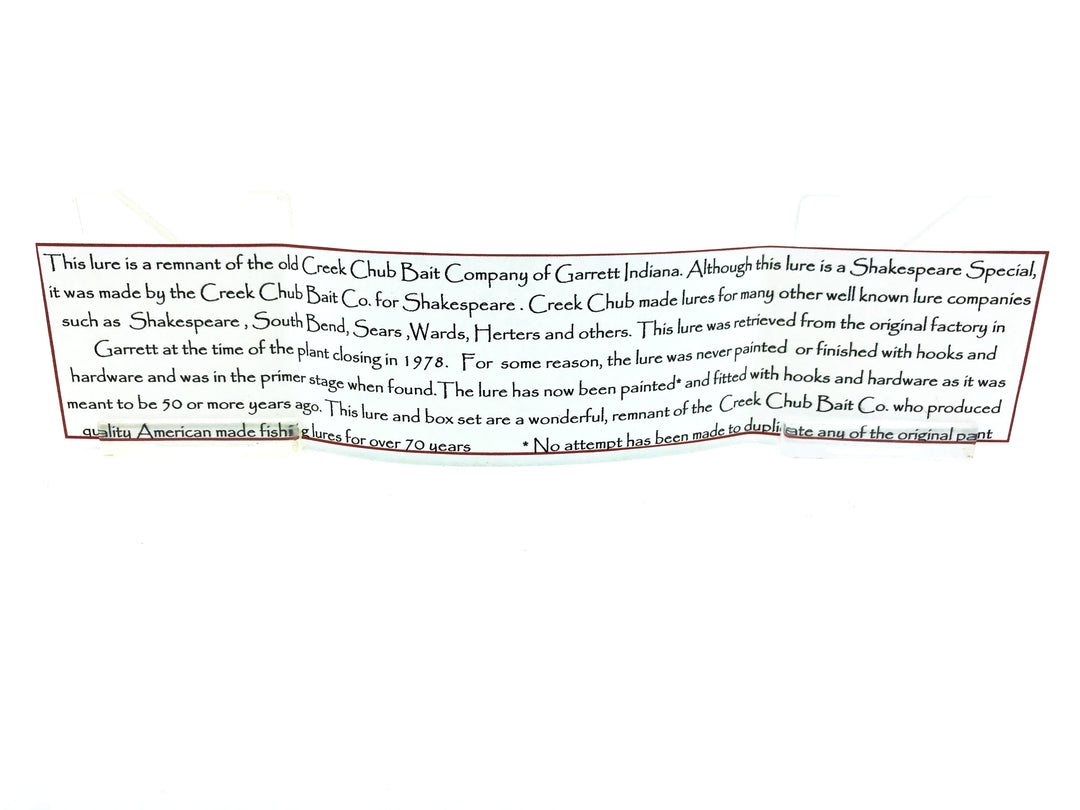 This lure is a remnant of the old Creek Chub Bait Company of Garrett Indiana. Although this lure is a Shakespeare Special,
it was made by the Creek Chub Bait Co. for Shakespeare . Creek Chub made lures for many other well known lure companies
such as Shakespeare , South Bend, Sears ,Wards, Herters and others. This lure was retrieved from the original factory in
Garrett at the time of the plant closing in 1978. For some reason, the lure was never painted or finished with hooks and
hardware and was in the primer stage when found. The lure has now been painted* and fitted with hooks and hardware as it was
meant to be 50 or more years ago. This lure and box set are a wonderful, remnant of the Creek Chub Bait Co. who produced
quality American made fishing lures for over 70 years * No attempt has been made to duplicate any of the original pant